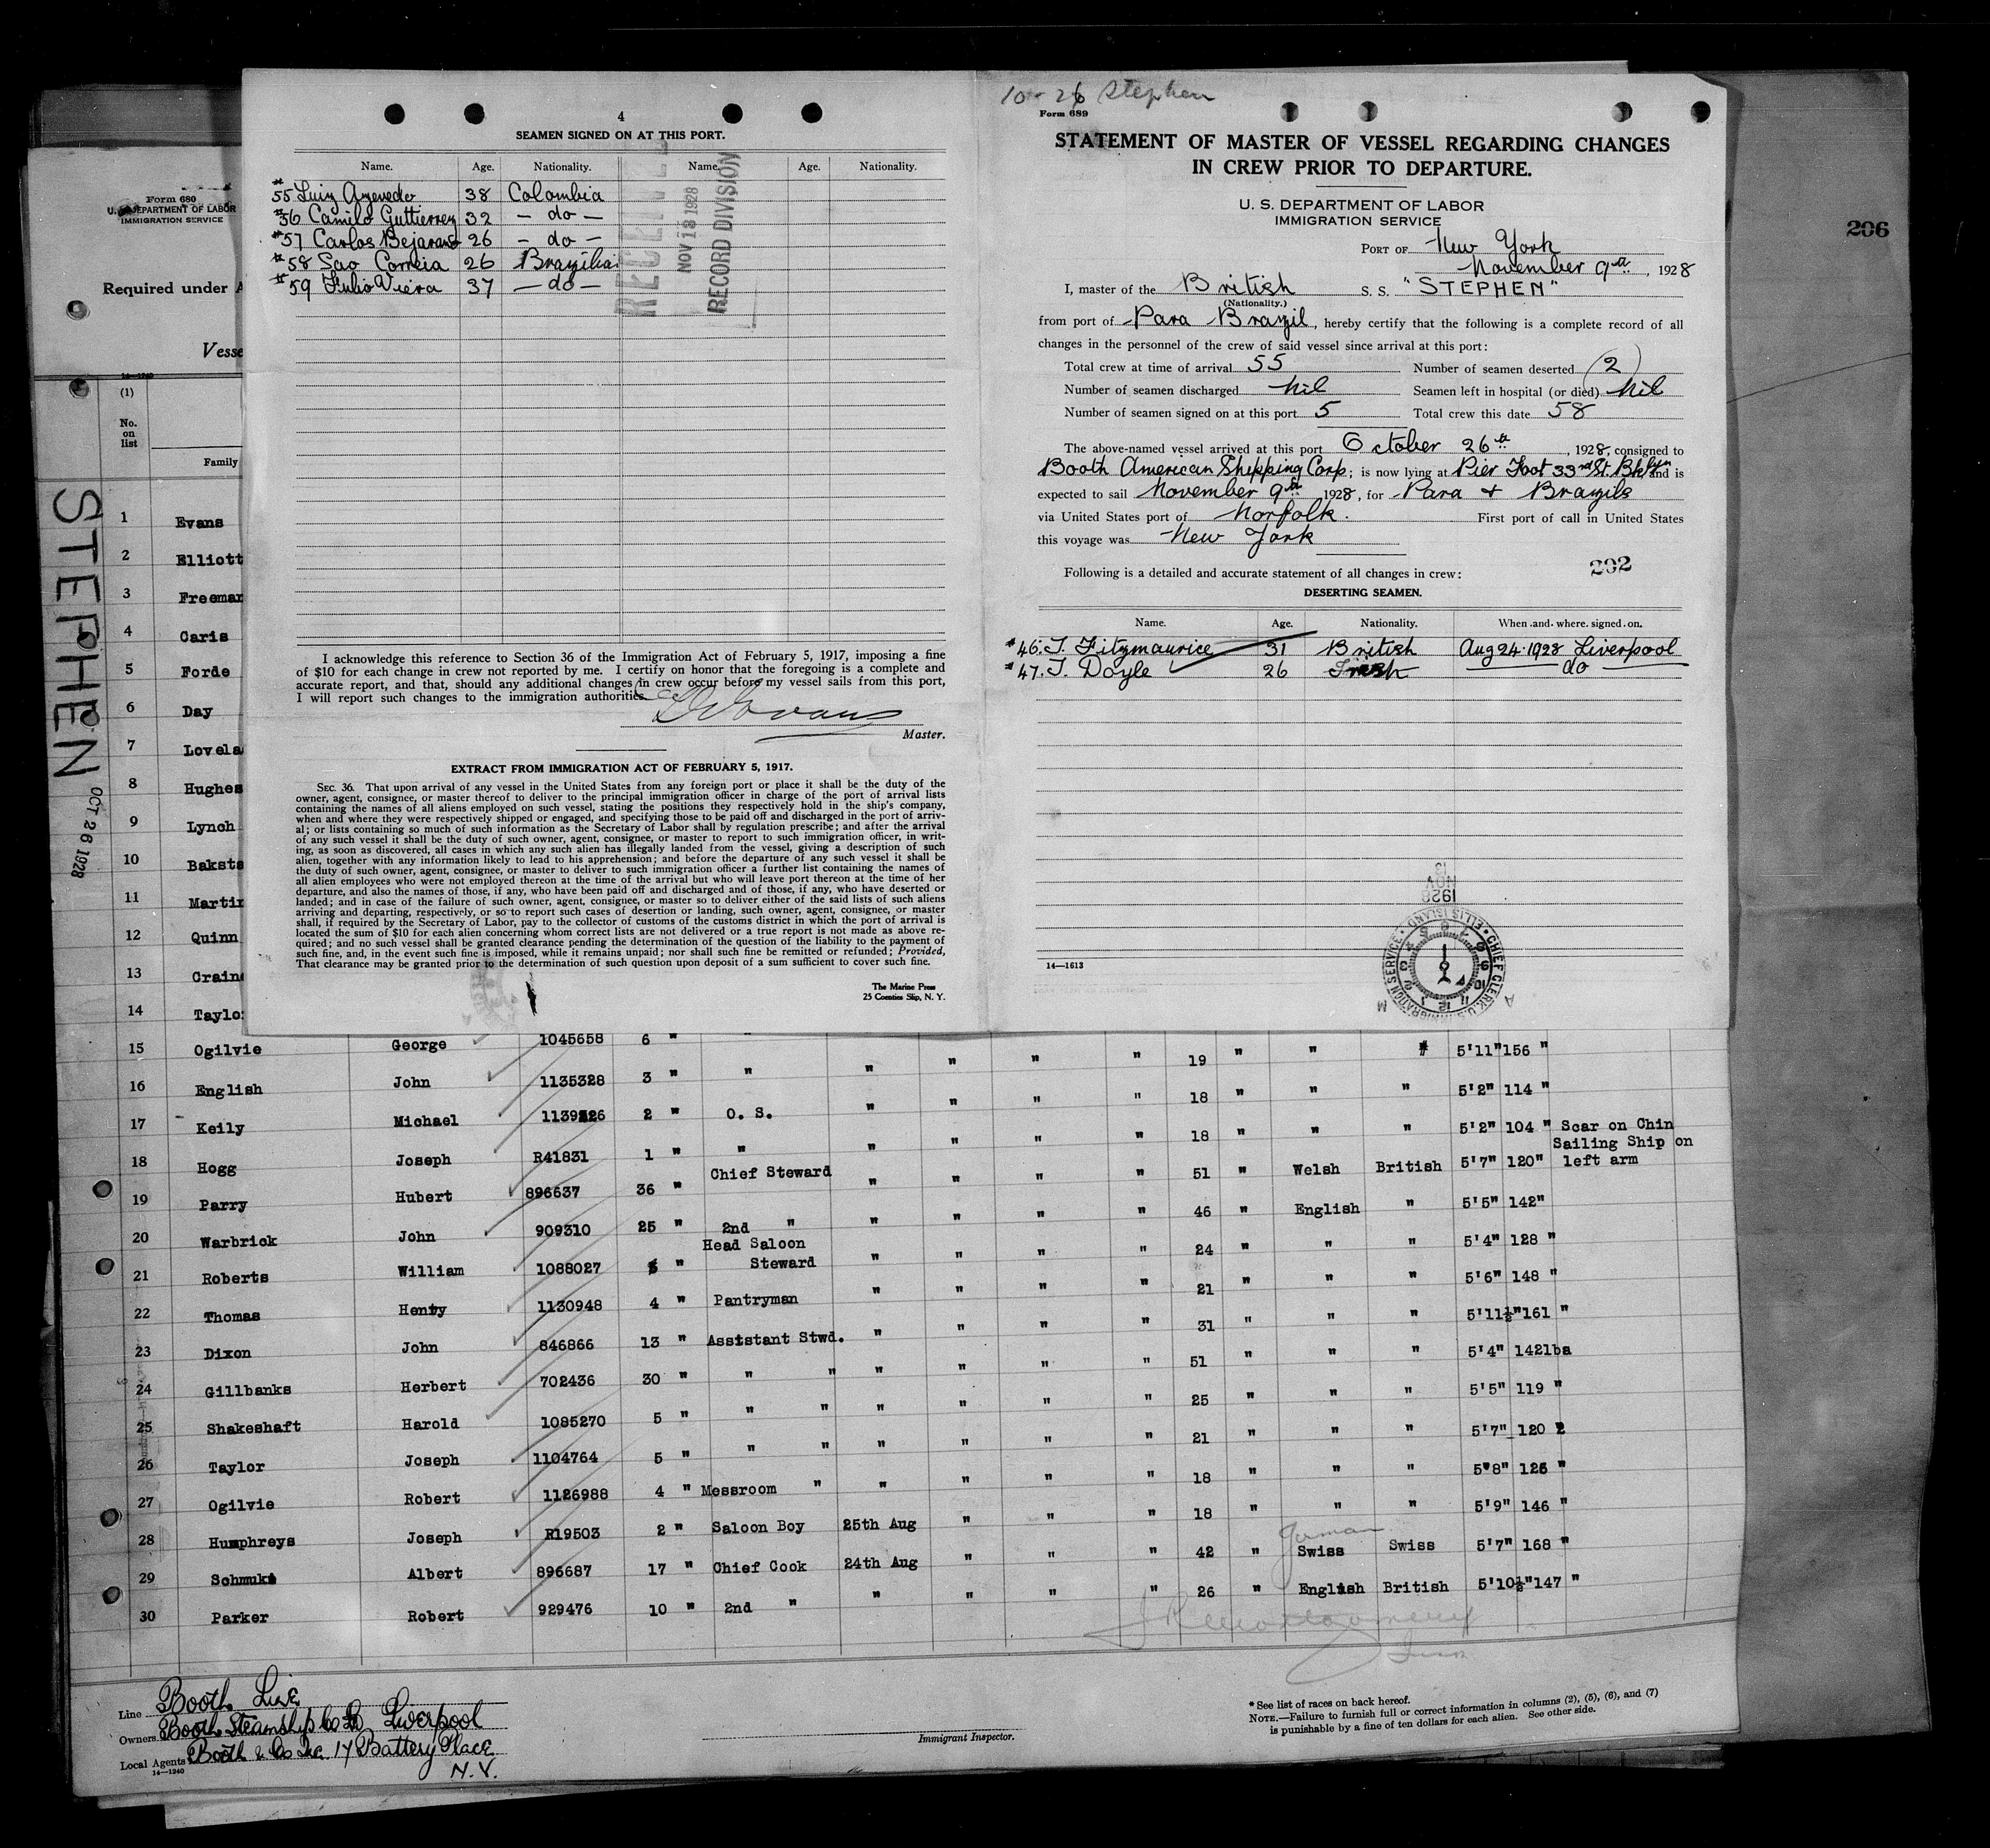 4
SEAMEN SIGNED ON AT THIS PORT.
Name. Age. Nationality. Name. Age. Nationality.
#55 Luiz Azevedo 38 Colombia
#56 Camilo Guttierrez 32 - do -
#57 Carlos Bejarano 26 - do -
#58 Sao Correia 26 Brazilian
#59 Julio Viera 37 - do -
RECEIVED
NOV 13 1928
RECORD DIVISION
I acknowledge this reference to Section 36 of the Immigration Act of February 5, 1917, imposing a fine
of $10 for each change in crew not reported by me. I certify on honor that the foregoing is a complete and
accurate report, and that, should any additional changes in crew occur before my vessel sails from this port,
I will report such changes to the immigration authorities.
Master.
EXTRACT FROM IMMIGRATION ACT OF FEBRUARY 5, 1917.
SEC. 36. That upon arrival of any vessel in the United States from any foreign port or place it shall be the duty of the
owner, agent, consignee, or master thereof to deliver to the principal immigration officer in charge of the port of arrival lists
containing the names of all aliens employed on such vessel, stating the positions they respectively hold in the ship's company,
when and where they were respectively shipped or engaged, and specifying those to be paid off and discharged in the port of arriv-
al; or lists containing so much of such information as the Secretary of Labor shall by regulation prescribe; and after the arrival
of any such vessel it shall be the duty of such owner, agent, consignee, or master to report to such immigration officer, in writ-
ing, as soon as discovered, all cases in which any such alien has illegally landed from the vessel, giving a description of such
alien, together with any information likely to lead to his apprehension; and before the departure of any such vessel it shall be
the duty of such owner, agent, consignee, or master to deliver to such immigration officer a further list containing the names of
all alien employees who were not employed thereon at the time of the arrival but who will leave port thereon at the time of her
departure, and also the names of those, if any, who have been paid off and discharged and of those, if any, who have deserted or
landed; and in case of the failure of such owner, agent, consignee, or master so to deliver either of the said lists of such aliens
arriving and departing, respectively, or so to report such cases of desertion or landing, such owner, agent, consignee, or master
shall, if required by the Secretary of Labor, pay to the collector of customs of the customs district in which the port of arrival is
located the sum of $10 for each alien concerning whom correct lists are not delivered or a true report is not made as above re-
quired; and no such vessel shall be granted clearance pending the determination of the question of the liability to the payment of
such fine, and, in the event such fine is imposed, while it remains unpaid; nor shall such fine be remitted or refunded; Provided,
That clearance may be granted prior to the determination of such question upon deposit of a sum sufficient to cover such fine.
The Marine Press
25 Coenties Slip, N. Y.
10-26 Stephen
Form 689
STATEMENT OF MASTER OF VESSEL REGARDING CHANGES
IN CREW PRIOR TO DEPARTURE.
U. S. DEPARTMENT OF LABOR
IMMIGRATION SERVICE
PORT OF New York
November 9th, 1928
I, master of the British S. S. "STEPHEN"
(Nationality.)
from port of Para Brazil, hereby certify that the following is a complete record of all
changes in the personnel of the crew of said vessel since arrival at this port:
Total crew at time of arrival 55 Number of seamen deserted (2)
Number of seamen discharged Nil Seamen left in hospital (or died) Nil
Number of seamen signed on at this port 5 Total crew this date 58
The above-named vessel arrived at this port October 26th, 1928, consigned to
Booth American Shipping Corp; is now lying at Pier Foot 33rd St. Bklyn and is
expected to sail November 9th 1928, for Para & Brazils
via United States port of Norfolk. First port of call in United States
this voyage was New York
292
Following is a detailed and accurate statement of all changes in crew:
DESERTING SEAMEN.
Name. Age. Nationality. When and where signed on.
#46. J. Fitzmaurice 31 British Aug 24-1928 Liverpool
#47. J. Doyle 26 Irish do
14-1613
13 NOV 1928
CHIEF CLERK, U.S. IMMIGRATION SERVICE ELLIS ISLAND
206
Form 680
U. S. DEPARTMENT OF LABOR
IMMIGRATION SERVICE
Required under A
Vesse
14-1240
(1)
No. on list
Family
STEPHEN
OCT 26 1928
1 Evans
2 Elliott
3 Freeman
4 Caris
5 Forde
6 Day
7 Lovela
8 Hughes
9 Lynch
10 Baksta
11 Martin
12 Quinn
13 Craine
14 Taylo
15 Ogilvie George 1045658 6 " " " " " 19 " " " 5'11" 156 "
16 English John 1135328 3 " " " " " " 18 " " " 5'2" 114 "
17 Keily Michael 1139226 2 " O. S. " " " " 18 " " " 5'2" 104 " Scar on Chin
18 Hogg Joseph R41831 1 " " " " " " 51 " Welsh British 5'7" 120 " Sailing Ship on left arm
19 Parry Hubert 896637 36 " Chief Steward " " " " 46 " English " 5'5" 142"
20 Warbrick John 909310 25 " 2nd " " " " " 24 " " " 5'4" 128 "
21 Roberts William 1088027 5 " Head Saloon Steward " " " " 21 " " " 5'6" 148 "
22 Thomas Henry 1130948 4 " Pantryman " " " " 31 " " " 5'11½" 161 "
23 Dixon John 846866 13 " Assistant Stwd. " " " " 51 " " " 5'4" 142lbs
24 Gillbanks Herbert 702436 30 " " " " " " " 25 " " " 5'5" 119 "
25 Shakeshaft Harold 1085270 5 " " " " " " " 21 " " " 5'7" 120 "
26 Taylor Joseph 1104764 5 " " " " " " " 18 " " " 5'8" 126 "
27 Ogilvie Robert 1126988 4 " Messroom " " " " " 18 " " " 5'9" 146 "
28 Humphreys Joseph R19503 2 " Saloon Boy 25th Aug " " " 42 " German Swiss Swiss 5'7" 168 "
29 Schmuki Albert 896687 17 " Chief Cook 24th Aug " " " 26 " English British 5'10½" 147 "
30 Parker Robert 929476 10 " 2nd " " " " "
Line Booth Line
Owners Booth Steamship Co Ld Liverpool
Local Agents Booth & Co Inc. 17 Battery Place
14-1240 N.Y.
Immigrant Inspector.
* See list of races on back hereof.
NOTE.—Failure to furnish full or correct information in columns (2), (5), (6), and (7)
is punishable by a fine of ten dollars for each alien. See other side.